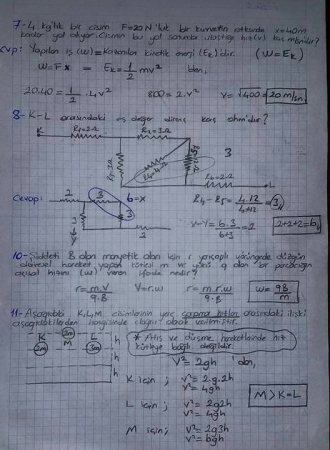 7-4 kg'lık bir cisim F=20N'luk bir kuvvetin etkisinde x=40m
kadar yol alıyor. Cismin bu yol sonunda ulaştığı hız(v) kaç m/sn'dir?
Cvp: Yapılan iş (W)= Kazanılan kinetik enerji (Ek)'dir. (W=Ek)
W=F.x = Ek=1/2 mv² 'den,
20.40=1/2.4v² 800=2.v² v=√400=20m/sn
8- K-L arasındaki eş değer direnç kaç ohm'dur?
K R1=2Ω R2=3Ω
R4=4Ω
3
L
Cevap: 2 3 6=x
3
2
R4-R5= 4.12/4+12 = 3
x-y= 6.3/6+3 =2 2+2+2=6
10- Şiddeti B olan manyetik alan için r yarıçaplı yörüngede düzgün
dairesel hareket yapan kütlesi m ve yükü q olan bir parçacığın
açısal hızını (w) veren ifade nedir?
r= m.v/q.B V=r.w r= m.r.w/q.B w= qB/m
11- Aşağıdaki K,L,M cisimlerinin yere çarpma hızları arasındaki ilişki
aşağıdakilerden hangisinde doğru olarak verilmiştir.
K 2m L h
2m M 3m h
h
* Atış ve düşme hareketlerinde hız
kütleye bağlı değildir.
V²=2gh 'dan,
K için; V²=2.g.2h
V²=4gh
L için; V²=2g2h
V²=4gh
M için; V²=2g3h
V²=6gh
M>K=L